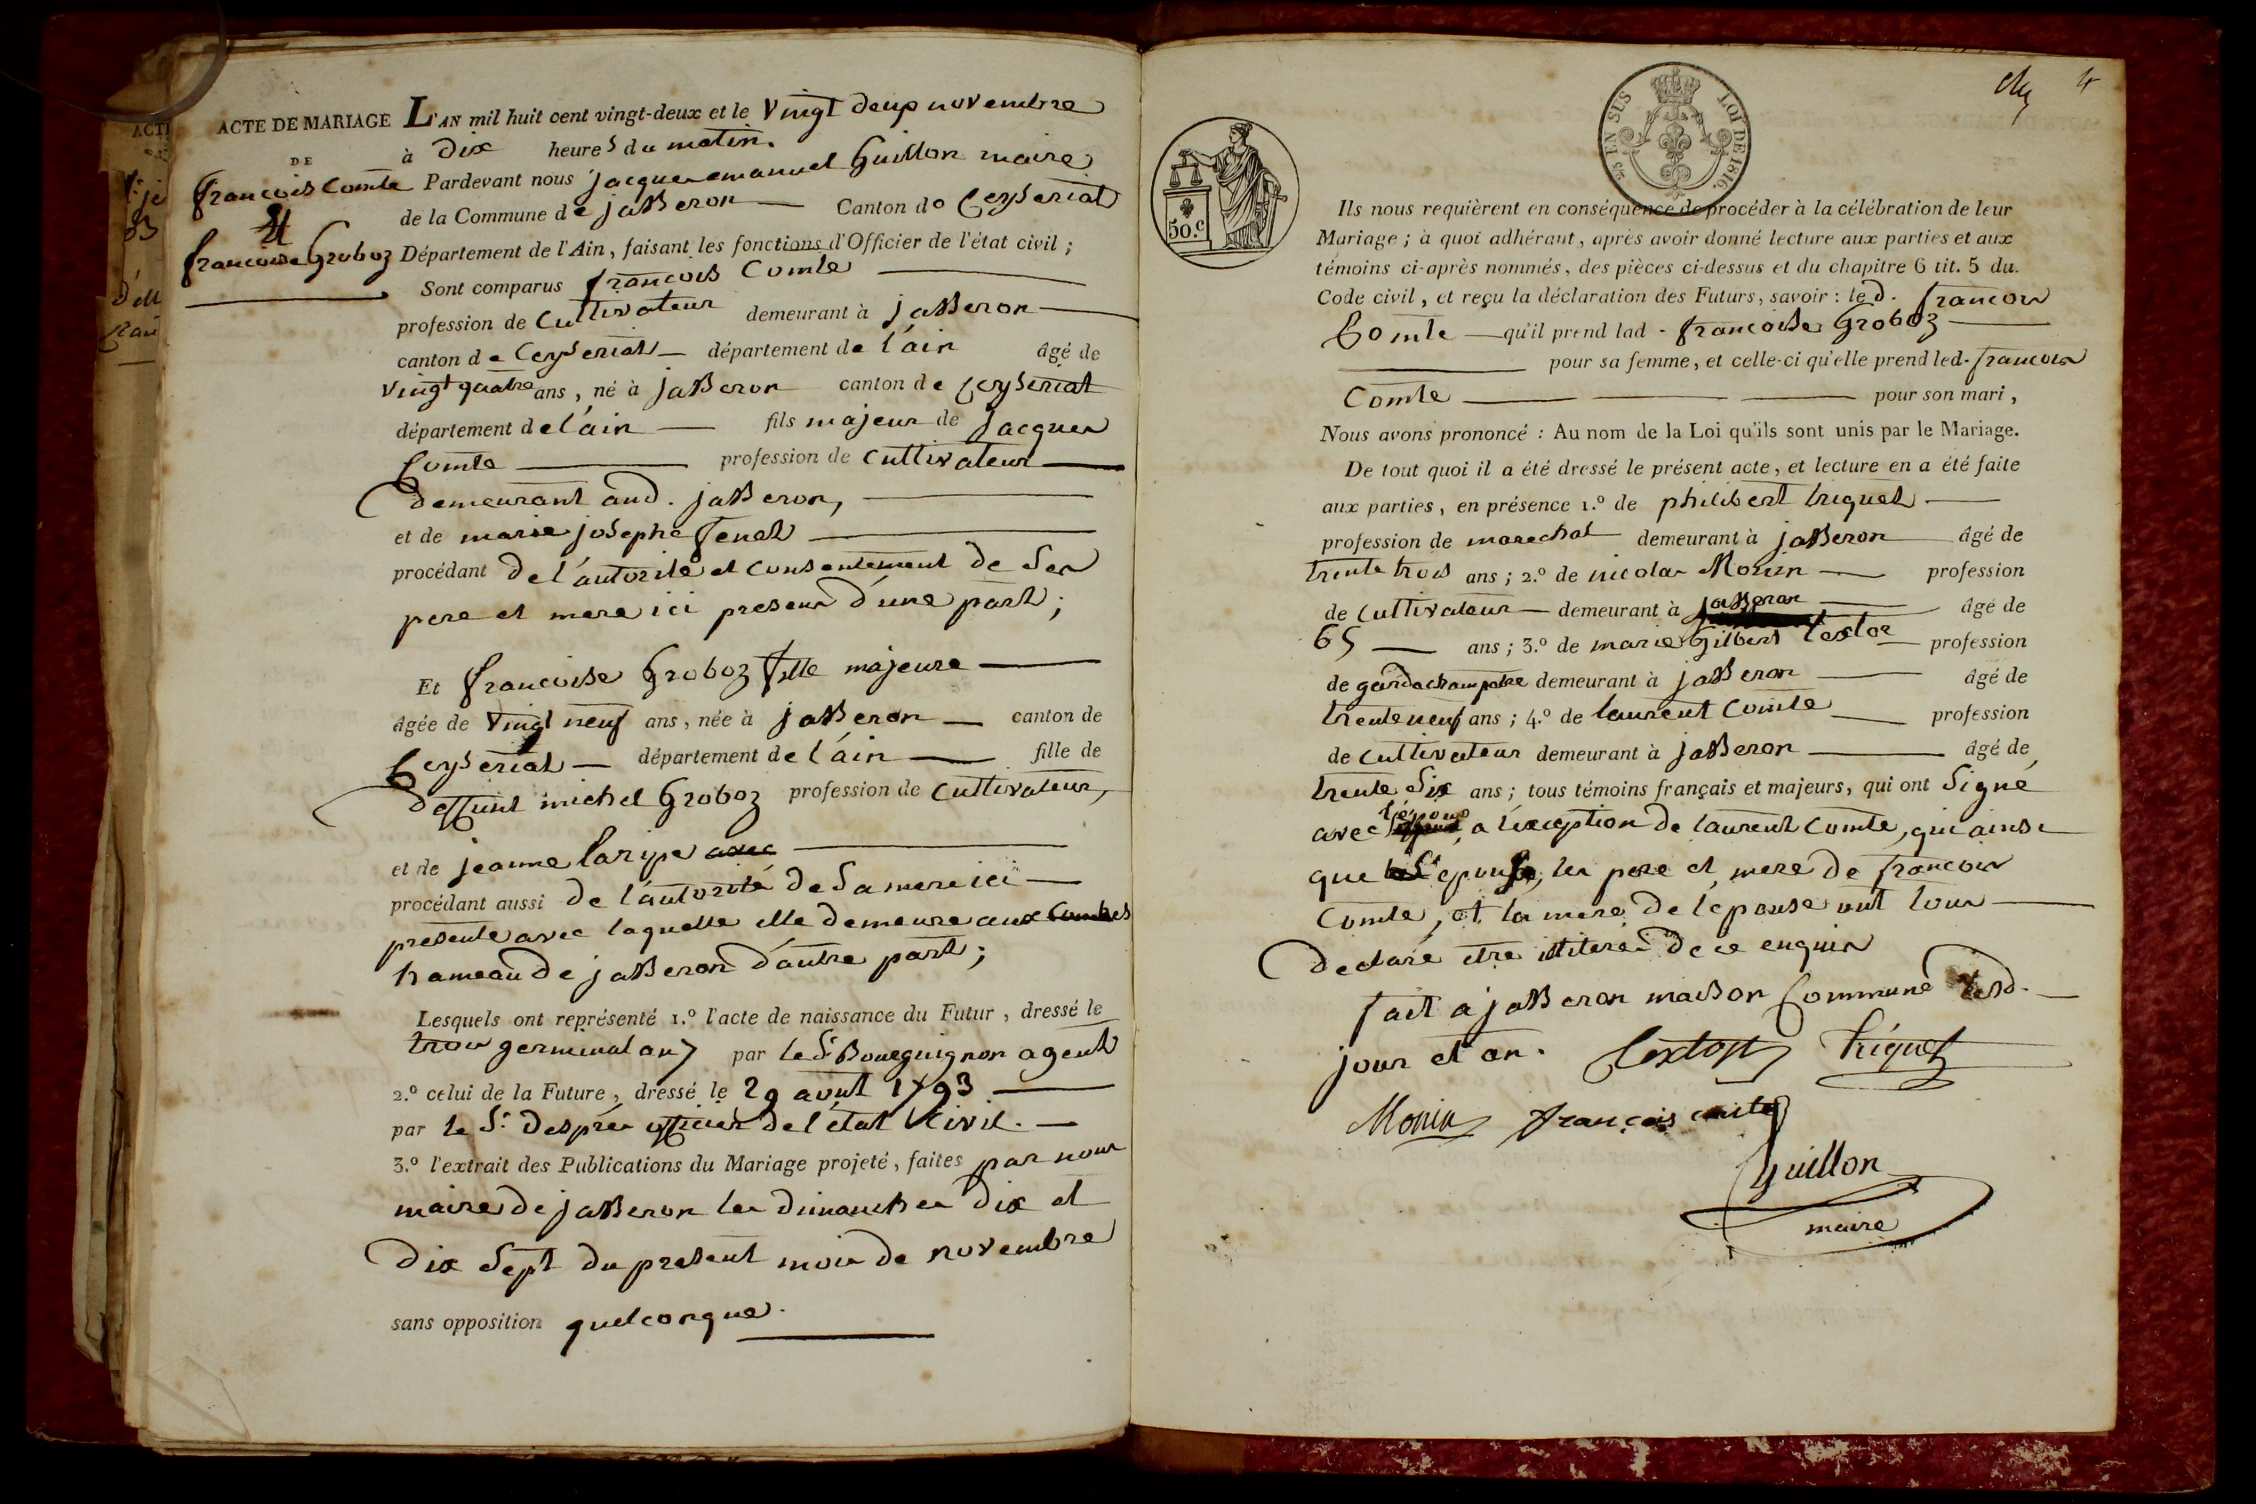 ACTE DE MARIAGE L'AN mil huit cent vingt-deux et le vingt deux novembre
DE à dix heures du matin.
francois Comte Pardevant nous jacque emanuel Guillon maire
& de la Commune de jasseron Canton de Ceyseriat
francoise Groboz Département de l'Ain, faisant les fonctions d'Officier de l'état civil ;
Sont comparus francois Comte
profession de Cultivateur demeurant à jasseron
canton de Ceyseriat département de l'ain âgé de
vingt quatre ans, né à jasseron canton de Ceyseriat
département de l'ain fils majeur de jacques
Comte profession de cultivateur
demeurant aud. jasseron,
et de marie josephe fenet
procédant de l'autorité et consentement de Ses
pere et mere ici presens d'une part ;
Et francoise Groboz fille majeure
âgée de vingt neuf ans, née à jasseron canton de
Ceyseriat département de l'ain fille de
deffunt michel Groboz profession de cultivateur,
et de jeanne avec
procédant aussi de l'autorité de Sa mere ici
presente avec laquelle elle demeure aux Combes
hameau de jasseron d'autre part ;
Lesquels ont représenté 1.º l'acte de naissance du Futur, dressé le
trois germinal an 7 par le Sr. Bourguignon agent
2.º celui de la Future, dressé le 29 avut 1793
par le Sr. Després officier de l'état Civil.
3.º l'extrait des Publications du Mariage projeté, faites par nous
maire de jasseron les dimanches dix et
dix Sept du present mois de novembre
sans opposition quelconque.
4
25 EN SUS LOI DE 1816.
50.c
Ils nous requièrent en conséquence de procéder à la célébration de leur
Mariage ; à quoi adhérant, après avoir donné lecture aux parties et aux
témoins ci-après nommés, des pièces ci-dessus et du chapitre 6 tit. 5 du.
Code civil, et reçu la déclaration des Futurs, savoir : led. francois
Comte qu'il prend lad. francoise Groboz
pour sa femme, et celle-ci qu'elle prend led. francois
Comte pour son mari,
Nous avons prononcé : Au nom de la Loi qu'ils sont unis par le Mariage.
De tout quoi il a été dressé le présent acte, et lecture en a été faite
aux parties, en présence 1.º de philibert triquet
profession de marechal demeurant à jasseron âgé de
trente trois ans ; 2.º de nicolas Monin profession
de cultivateur demeurant à jasseron âgé de
65 ans ; 3.º de marie Gilbert textor profession
de gardechampetre demeurant à jasseron âgé de
trente neuf ans ; 4.º de laurent Comte profession
de cultivateur demeurant à jasseron âgé de
trente Six ans ; tous témoins français et majeurs, qui ont Signé
avec l'epoux, a l'exception de laurent Comte, qui ainsi
que l'epouse, les pere et mere de francois
Comte, et la mere de l'epouse ont tous
declaré etre illiterés de ce enquis
fait a jasseron maison Commune lesd.
jour et an. textor triquet
Monin françois comte
Guillon
maire